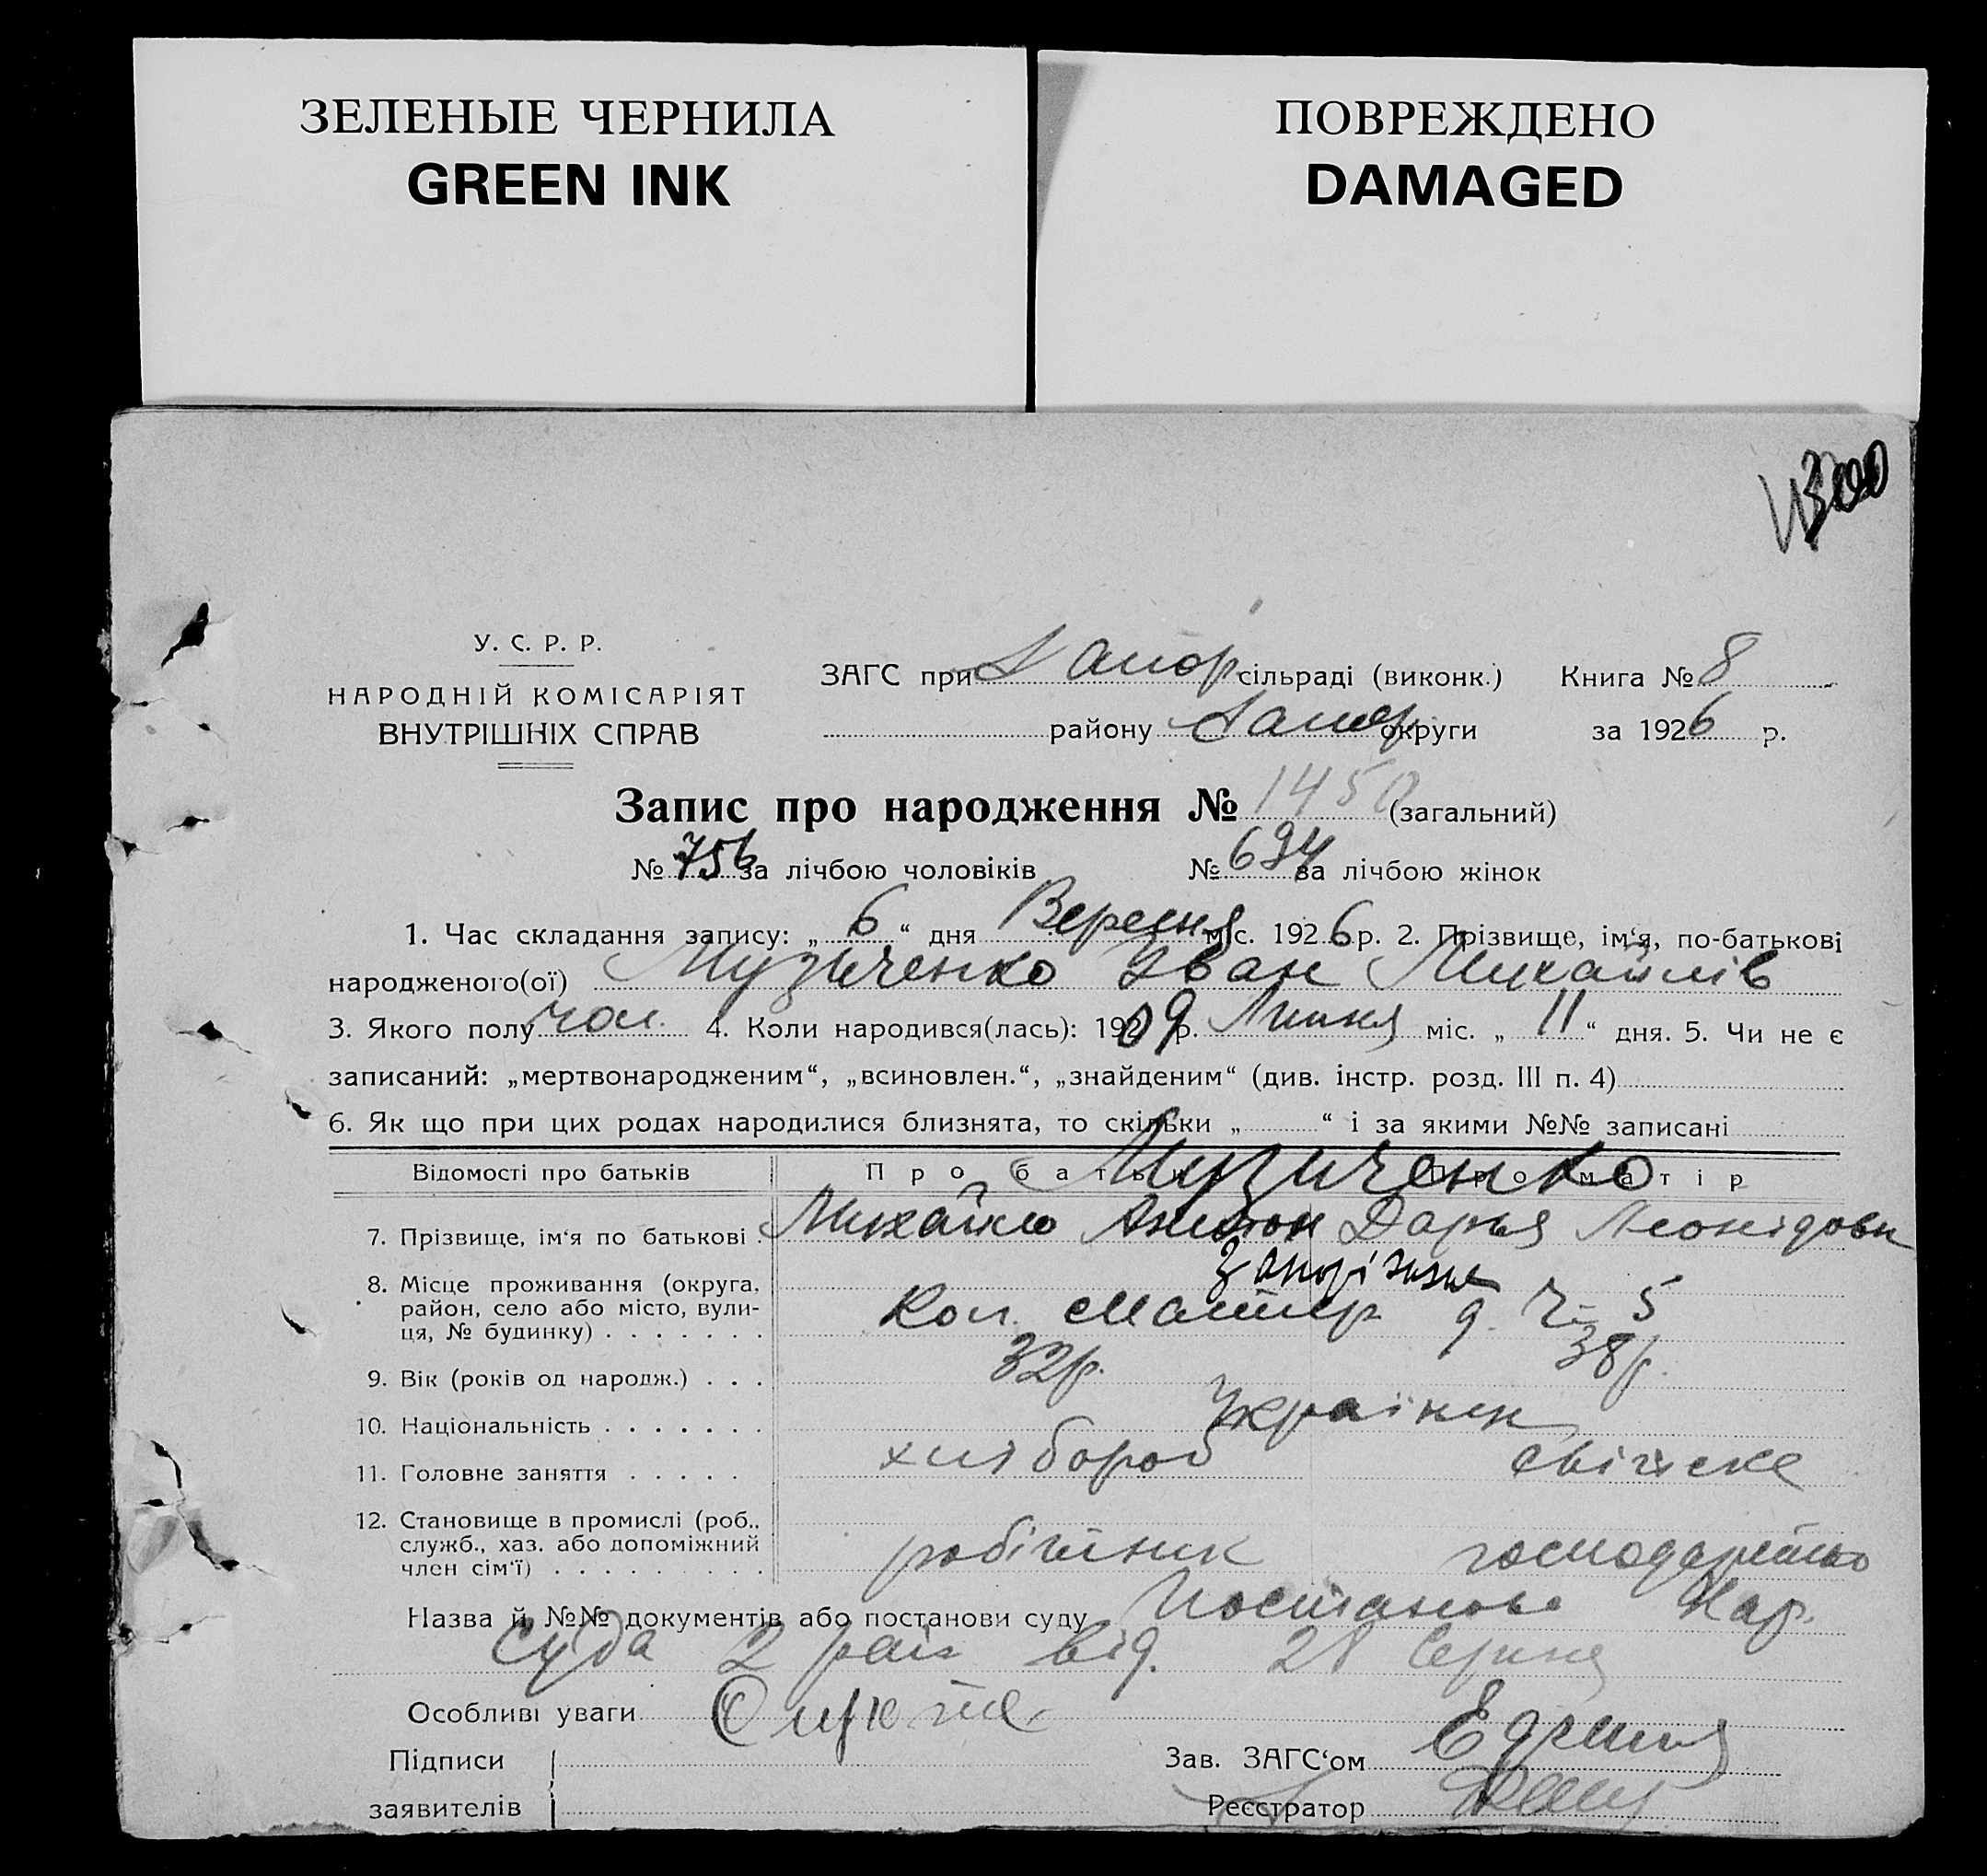 ЗЕЛЕНЫЕ ЧЕРНИЛА
GREEN INK
ПОВРЕЖДЕНО
DAMAGED
У. С. Р. Р.
НАРОДНІЙ КОМІСАРІЯТ
ВНУТРІШНІХ СПРАВ
ЗАГС при Запор сільраді (виконк.) Книга № 8
району Запор округи за 1926 р.
Запис про народження № 1450 (загальний)
№ 756 за лічбою чоловіків № 694 за лічбою жінок
1. Час складання запису: „ 6 “ дня Вересня міс. 1926 р. 2. Прізвище, ім‘я, по-батькові
народженого(ої) Музиченко Іван Михайлів
3. Якого полу чол. 4. Коли народився(лась): 1909 р. Липня міс. „ 11 “ дня. 5. Чи не є
записаний: „мертвонародженим“, „всиновлен.“, „знайденим“ (див. інстр. розд. III п. 4)
6. Як що при цих родах народилися близнята, то скільки „ “ і за якими №№ записані
Відомості про батьків Про батька Про матір
Музиченко
7. Прізвище, ім‘я по батькові . Михайло Антон Дарья Леонідовн
Запоріжжє
8. Місце проживання (округа,
район, село або місто, вули-
ця, № будинку) . . . . . . . Кол. д. Ч– 5
9. Вік (років од народж.) . . . 32р. 38р.
10. Національність . . . . . . . Українці
11. Головне заняття . . . . . хлібороб свійске
12. Становище в промислі (роб.,
служб., хаз. або допоміжний
член сім‘ї) . . . . . . . . . робітник господарство
Назва й №№ документів або постанови суду Постанова Нар.
суда 2 рай від. 28 Серпня
Особливі уваги
Підписи
заявителів
Зав. ЗАГС‘ом
Реєстратор